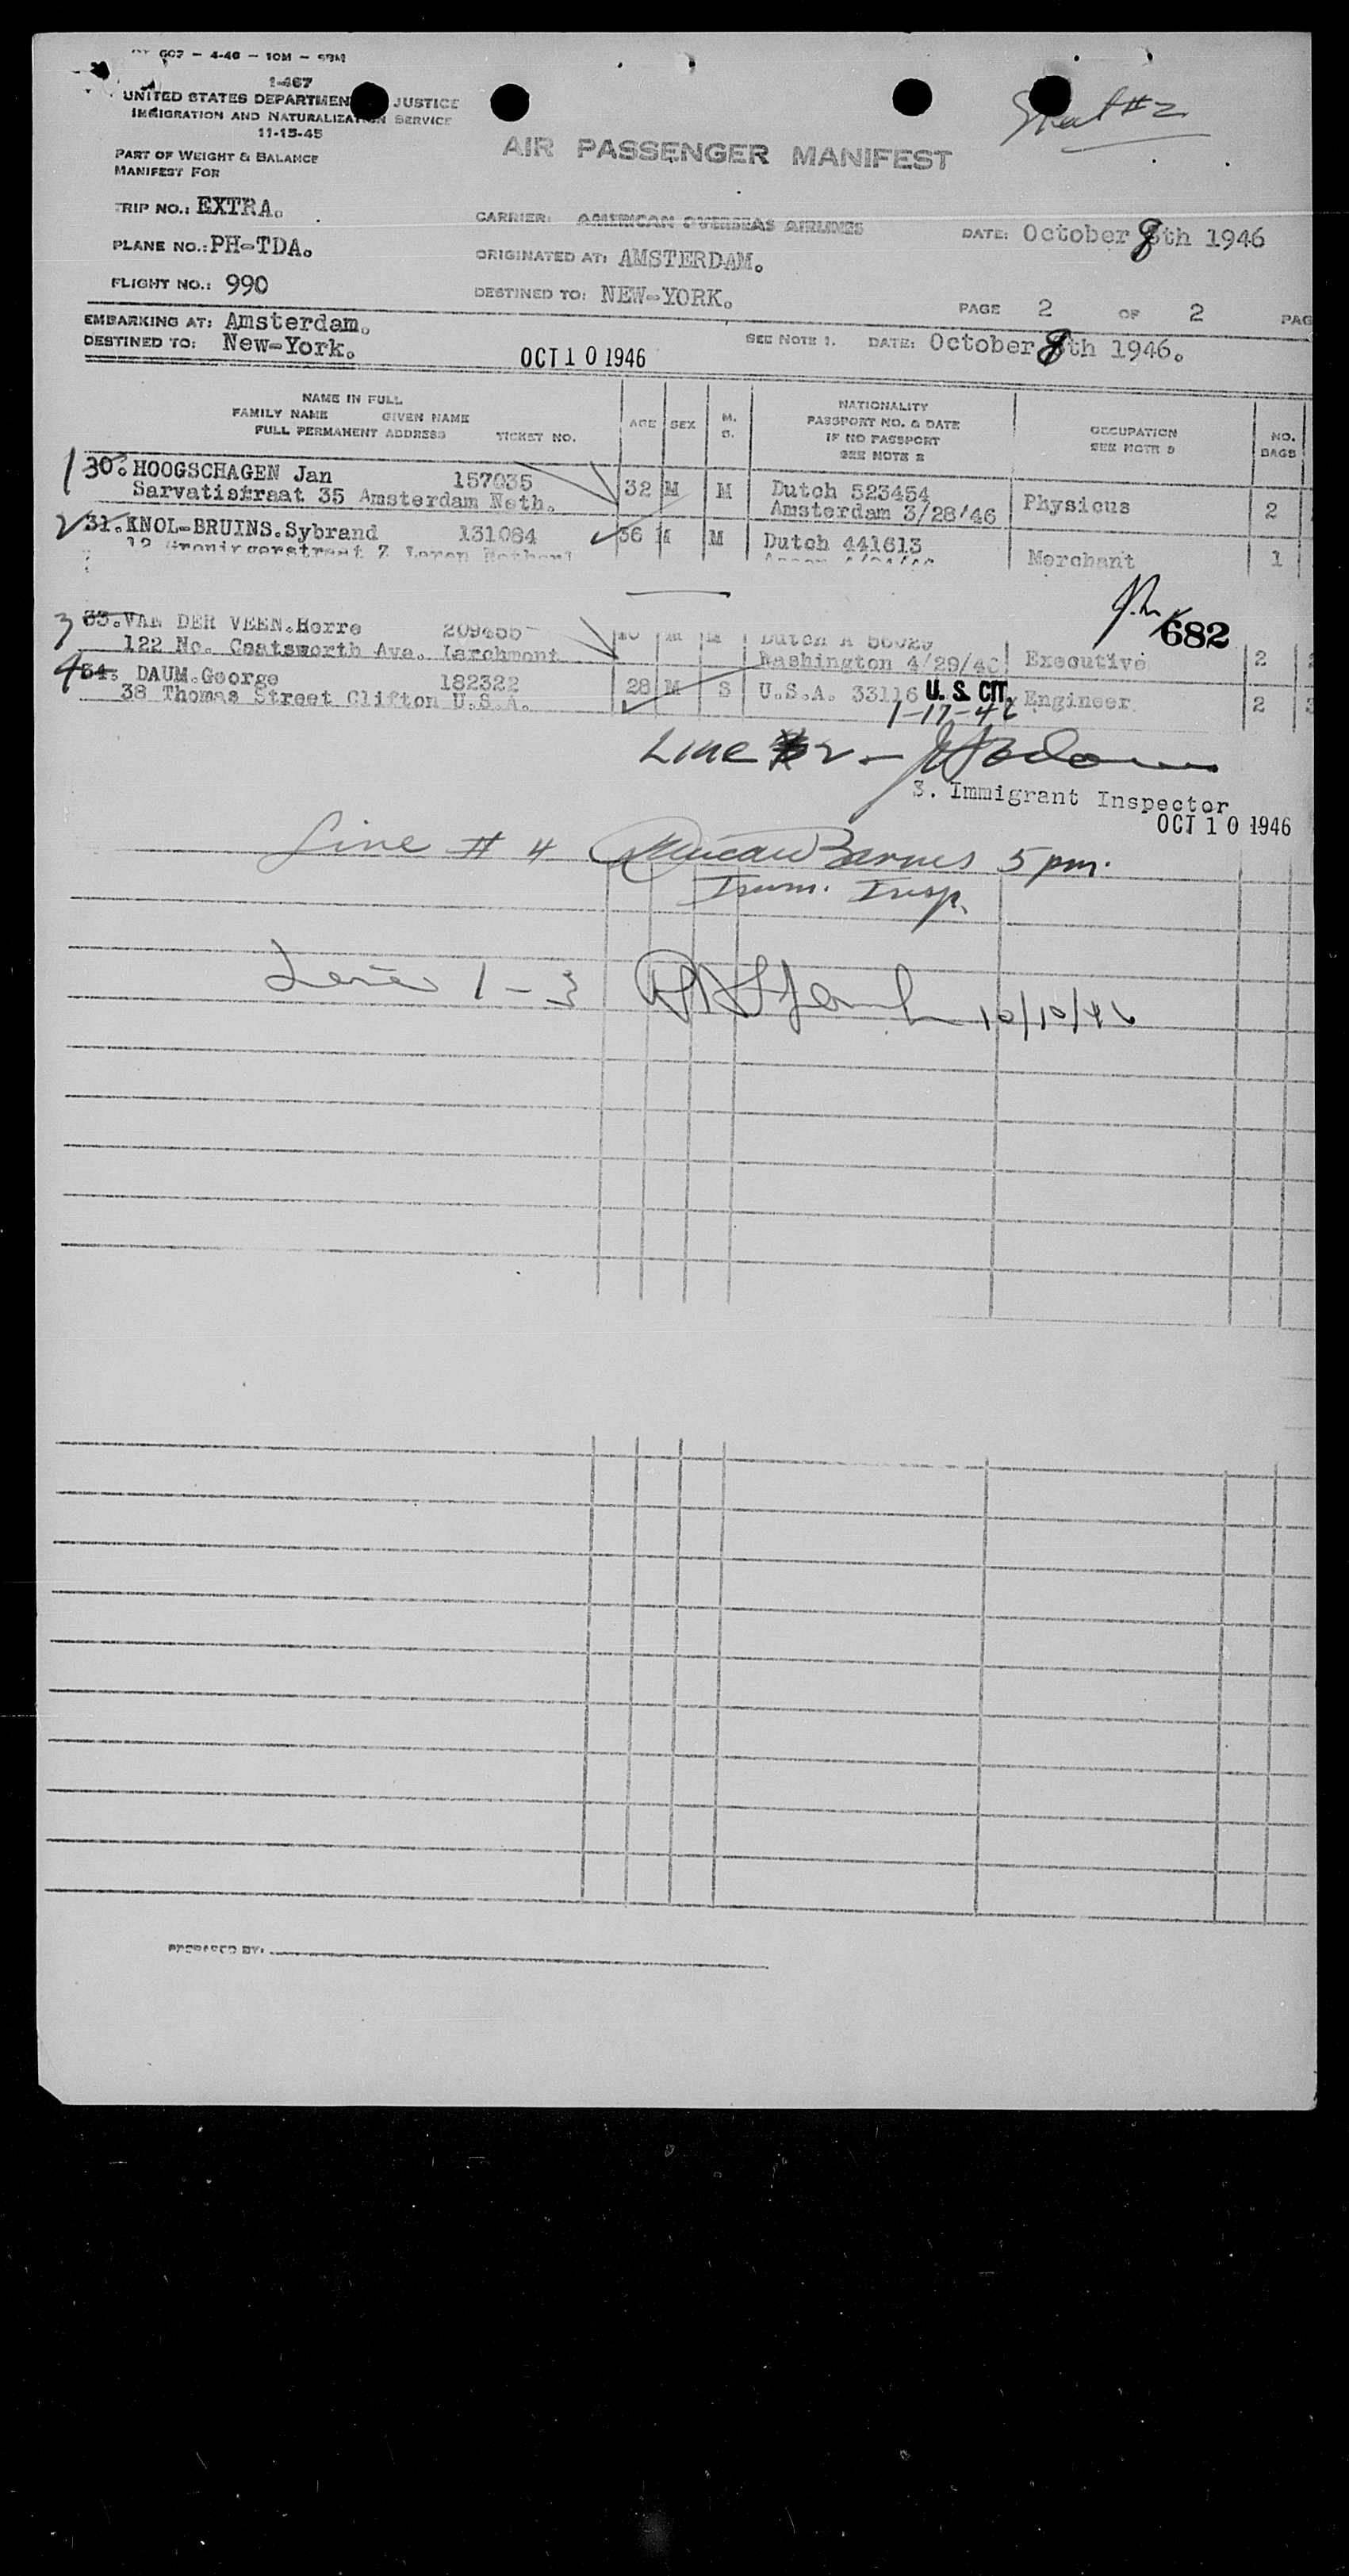 G02 - 4-46 - 10M - SBM
I-467
UNITED STATES DEPARTMENT JUSTICE
IMMIGRATION AND NATURALIZATION SERVICE
11-15-45
PART OF WEIGHT & BALANCE
MANIFEST FOR
Sheet #2
AIR PASSENGER MANIFEST
TRIP NO.: EXTRA.
CARRIER: AMERICAN OVERSEAS AIRLINES
DATE: October 8th 1946
PLANE NO.: PH-TDA.
ORIGINATED AT: AMSTERDAM.
FLIGHT NO.: 990
DESTINED TO: NEW-YORK.
PAGE 2 OF 2 PAG
EMBARKING AT: Amsterdam.
DESTINED TO: New-York.
OCT 10 1946
SEE NOTE 1. DATE: October 8th 1946.
NAME IN FULL
FAMILY NAME GIVEN NAME
FULL PERMANENT ADDRESS TICKET NO.
AGE SEX M. S.
NATIONALITY
PASSPORT NO. & DATE
IF NO PASSPORT
SEE NOTE 2
OCCUPATION
SEE NOTE 3
NO. BAGS
1 30. HOOGSCHAGEN Jan 157035 32 M M Dutch 523454 Physicus 2
Sarvatistraat 35 Amsterdam Neth. Amsterdam 3/28/46
2 31. KNOL-BRUINS.Sybrand 131084 36 M M Dutch 441613 Merchant 1
12
682
3 33. VAN DER VEEN.Herre M M Dutch A Executive 2
122 No. Chatsworth Ave. Larchmont Washington 4/29/40
4 34. DAUM.George 182322 28 M S U.S.A. 33116 U. S. CIT. Engineer 2
38 Thomas Street Clifton U.S.A. 1-17-46
LINE 2 -
S. Immigrant Inspector
OCT 10 1946
Line # 4 Duncan Barnes 5 pm.
Imm. Insp.
Lines 1 - 3 10/10/46
PREPARED BY: